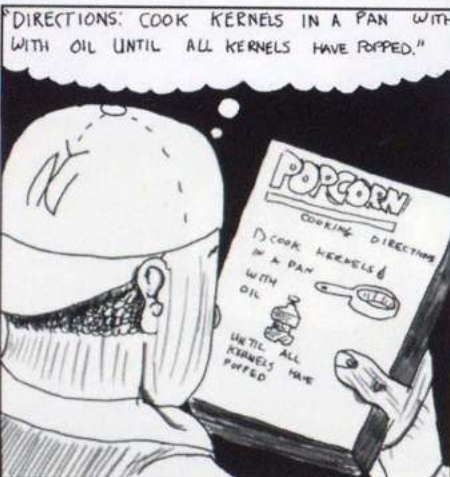 "DIRECTIONS: COOK KERNELS IN A PAN WITH
WITH OIL UNTIL ALL KERNELS HAVE POPPED."
NY
POPCORN
COOKING DIRECTIONS
1) COOK KERNELS
IN A PAN
WITH
OIL
UNTIL ALL
KERNELS HAVE
POPPED